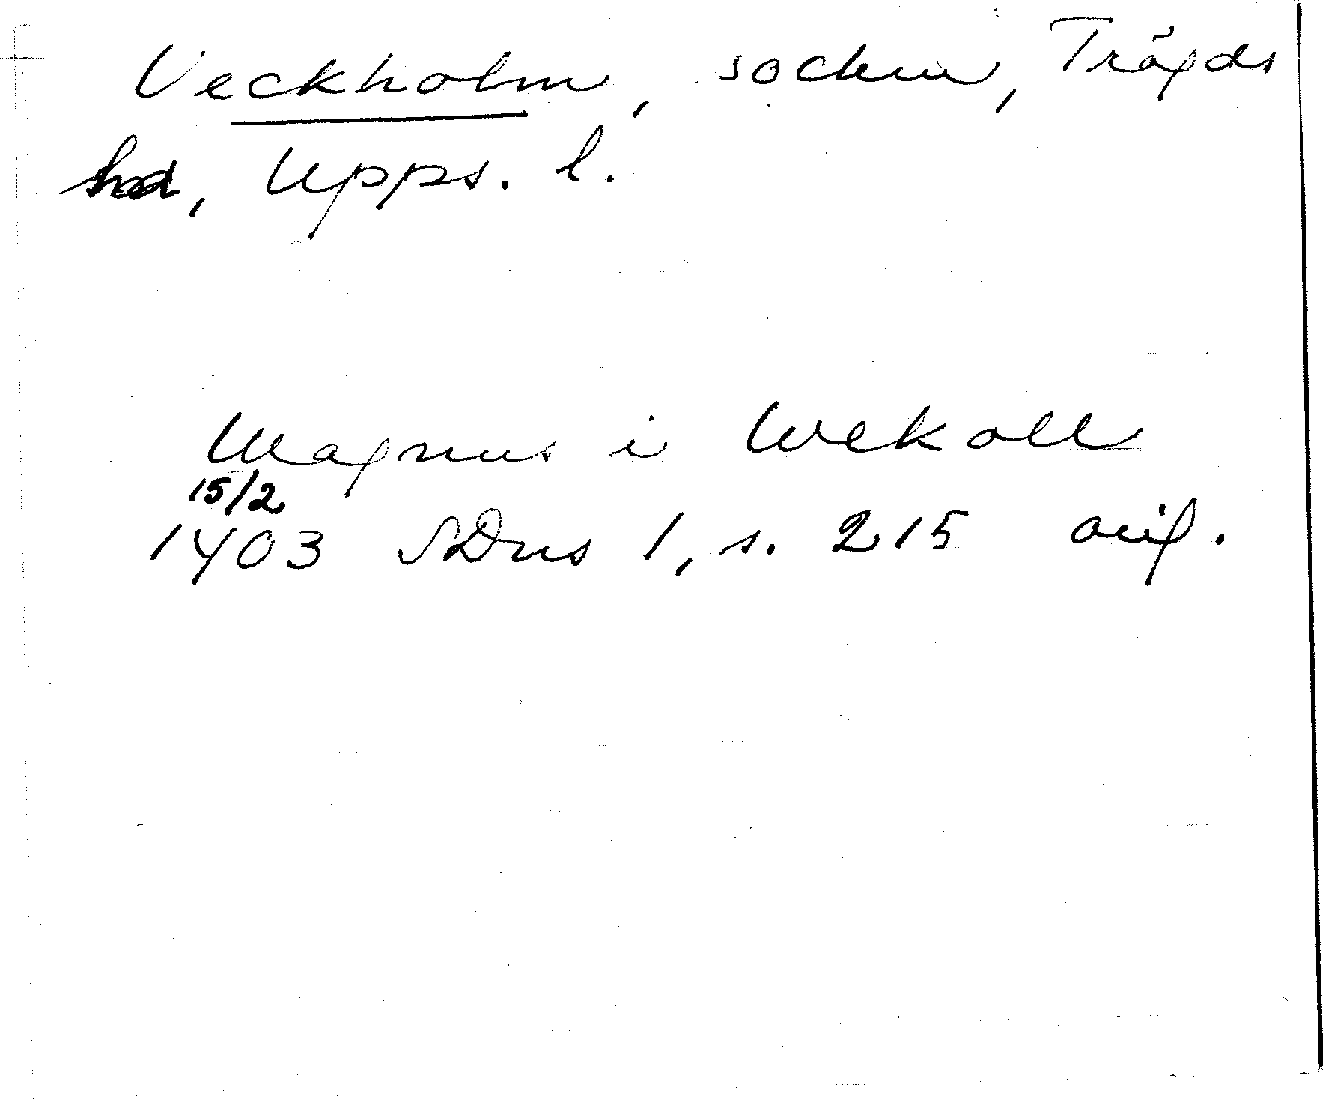 Veckholm, socken, Trögds
hd, Upps. l.
Magnus i Wekoll
15/2
1403 SDns 1, s. 215 orig.